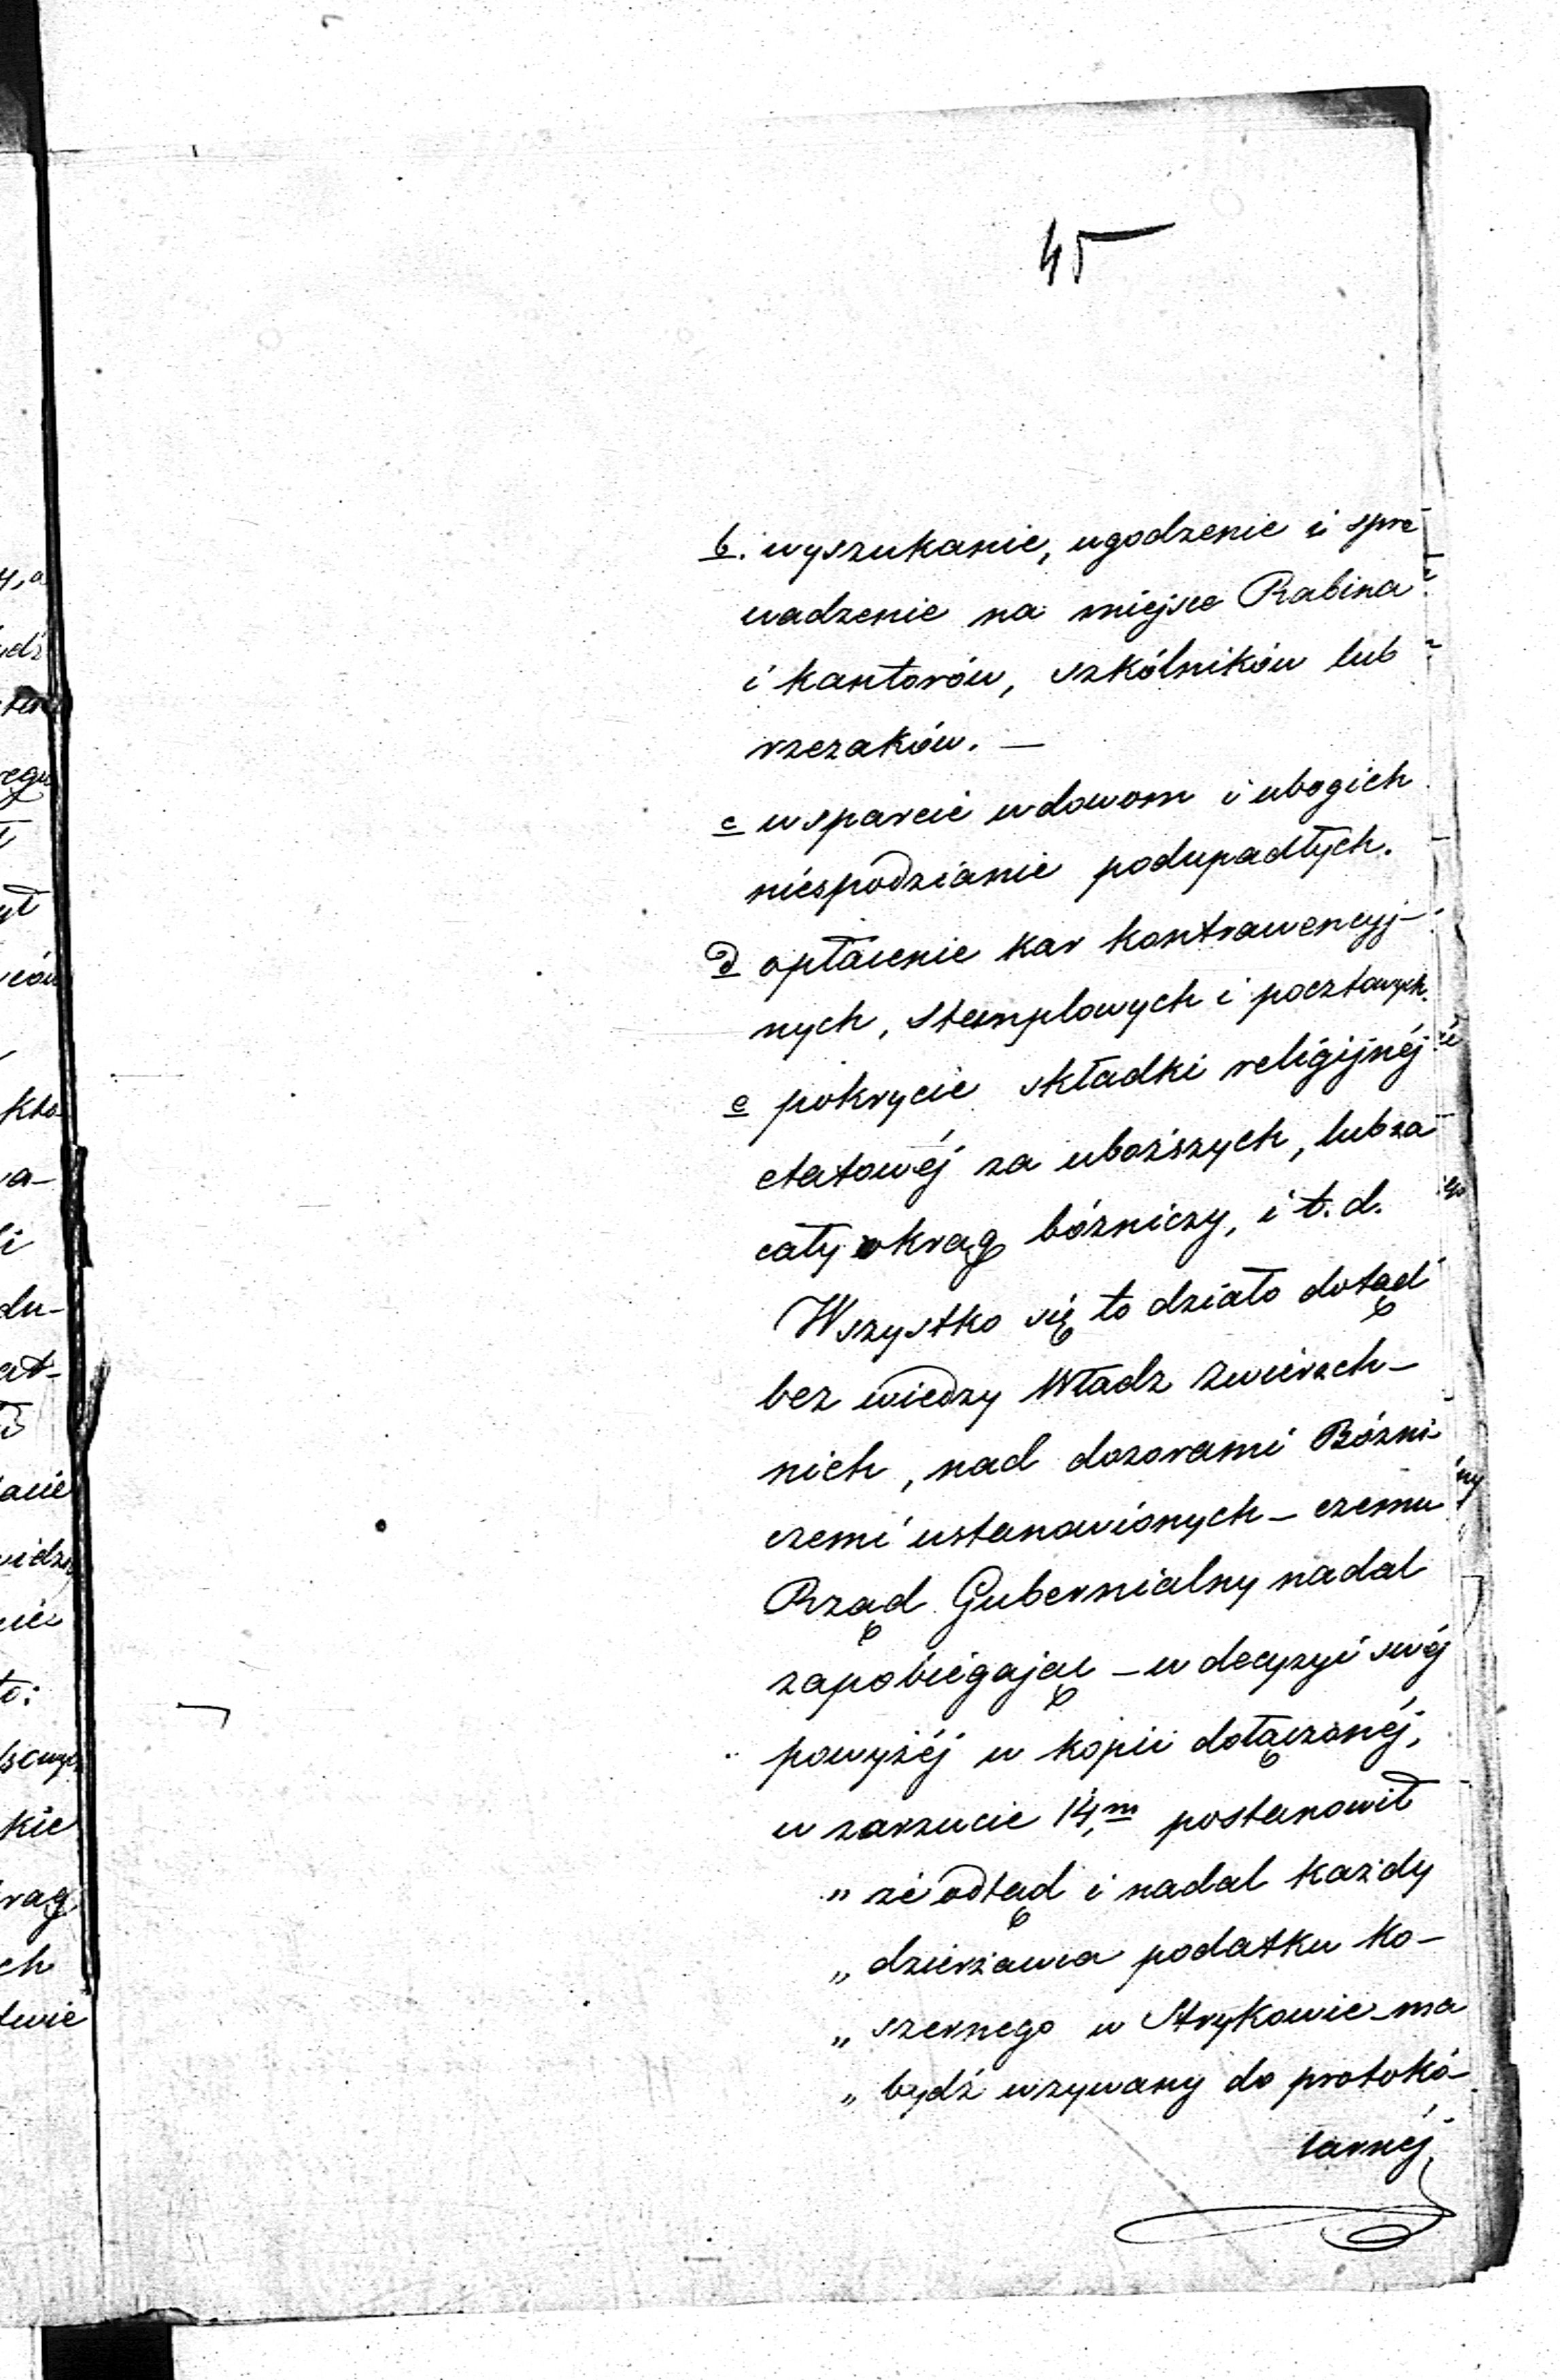 45
b. wyszukanie, ugodzenie i spro
wadzenie na miejsce Rabina
i kantorów, szkólników lub
rzezaków. —
c wsparcie wdowom i ubogich
niespodzianie podupadłych.
d opłacenie kar kontrawencyj-
nych, stemplowych i pocztowych.
e pokrycie składki religijnéj
etatowéj za uboższych, lub za
cały okrąg bózniczy, i t. d.
Wszystko się to działo dotąd
bez wiedzy Władz zwierzch-
nich, nad dozorami Bózni-
czemi ustanowionych - czemu
Rząd Gubernialny nadal
zapobiegając - w decyzyi swéj
powyżéj w kopii dołączonéj,
w zarzucie 14,m postanowił
„ że odtąd i nadal każdy
„ dzierżawca podatku ko-
„ szernego w Strykowie - ma
„ bydź wzywany do protokó-
larnéj